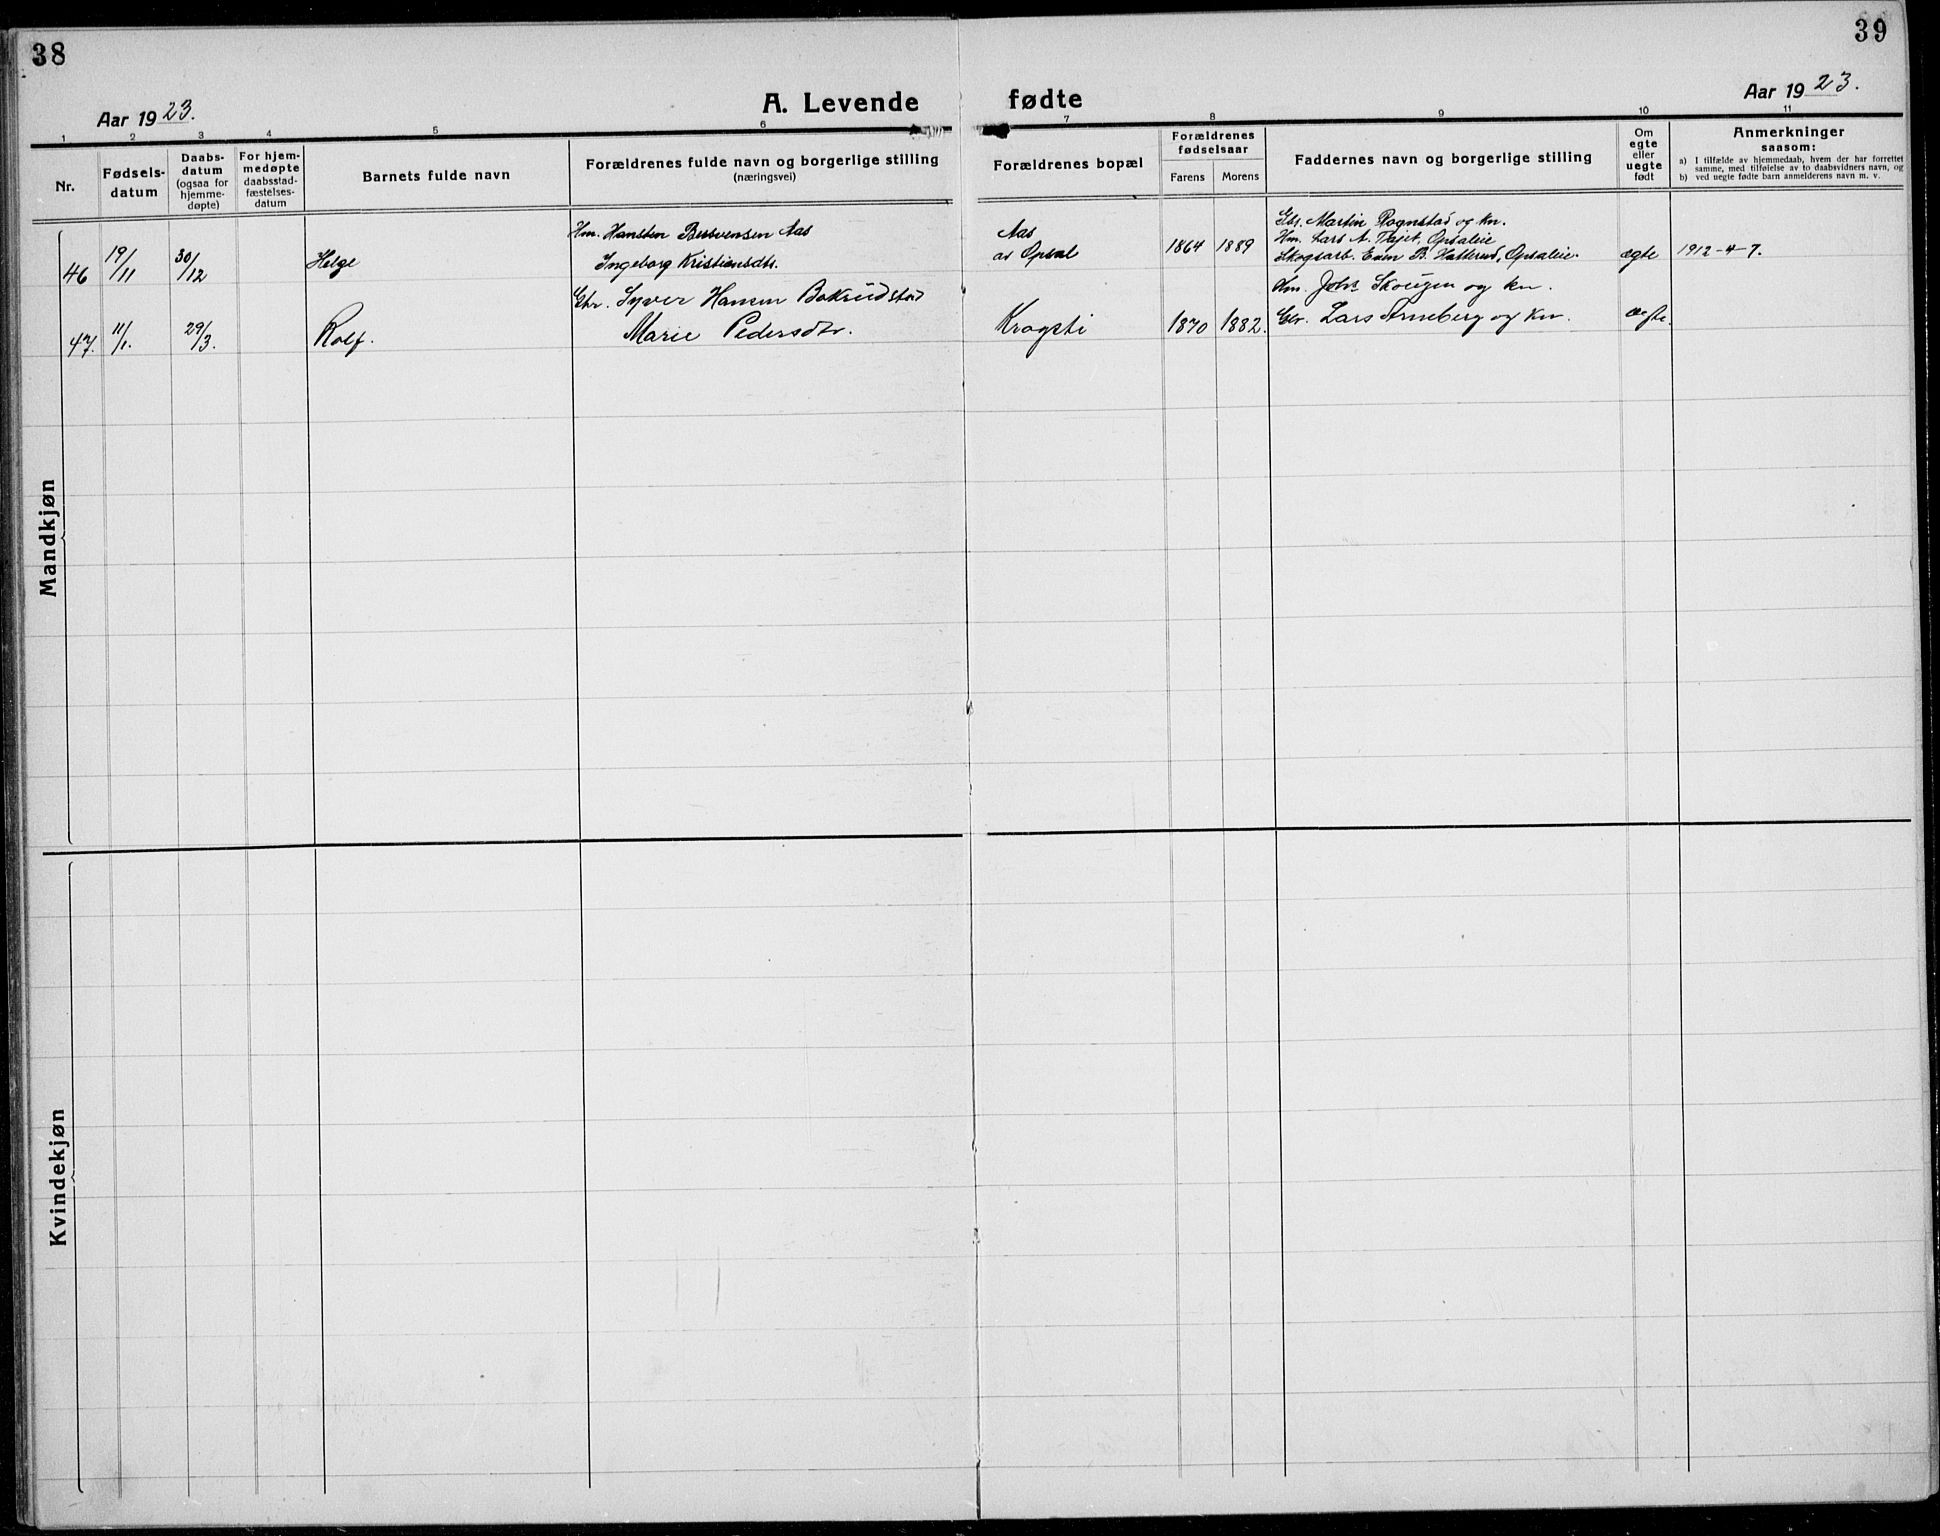 38
39
Aar 1923.
A. Levende fødte
Aar 1923.
1 2 3 4 5 6 7 8 9 10 11
Nr.
Fødsels-
datum
Daabs-
datum
(ogsaa for
hjemme-
døpte)
For hjem-
medøpte
daabsstad-
fæstelses-
datum
Barnets fulde navn
Forældrenes fulde navn og borgerlige stilling
(næringsvei)
Forældrenes bopæl
Forældrenes
fødselsaar
Farens Morens
Faddernes navn og borgerlige stilling
Om
egte
eller
uegte
født
Anmerkninger
saasom:
a) I tilfælde av hjemmedaab, hvem der har forrettet
samme, med tilføielse av to daabsvidners navn, og
b) ved uegte fødte barn anmelderens navn m. v.
Mandkjøn
46
19/11
30/12
Helge
Hm. Hansten Aas
Ingeborg Kristiansdtr.
Aas
av Opsal
1864 1889
Gbr. Martin Rognstad og kn.
Hm. Lars A. Flajet, Opsaleie
Skogsarb. Even B. Hatterud, Opsaleie.
ægte
1912-4-7.
47.
11/1.
29/3.
Rolf.
Gbr. Syver Hansen Bakrudstad
Marie Pedersdtr.
Kragsti
1870 1882.
Hm. Johs Skougen og kn.
Gbr. Lars Arneberg og kn.
ægte.
Kvindekjøn